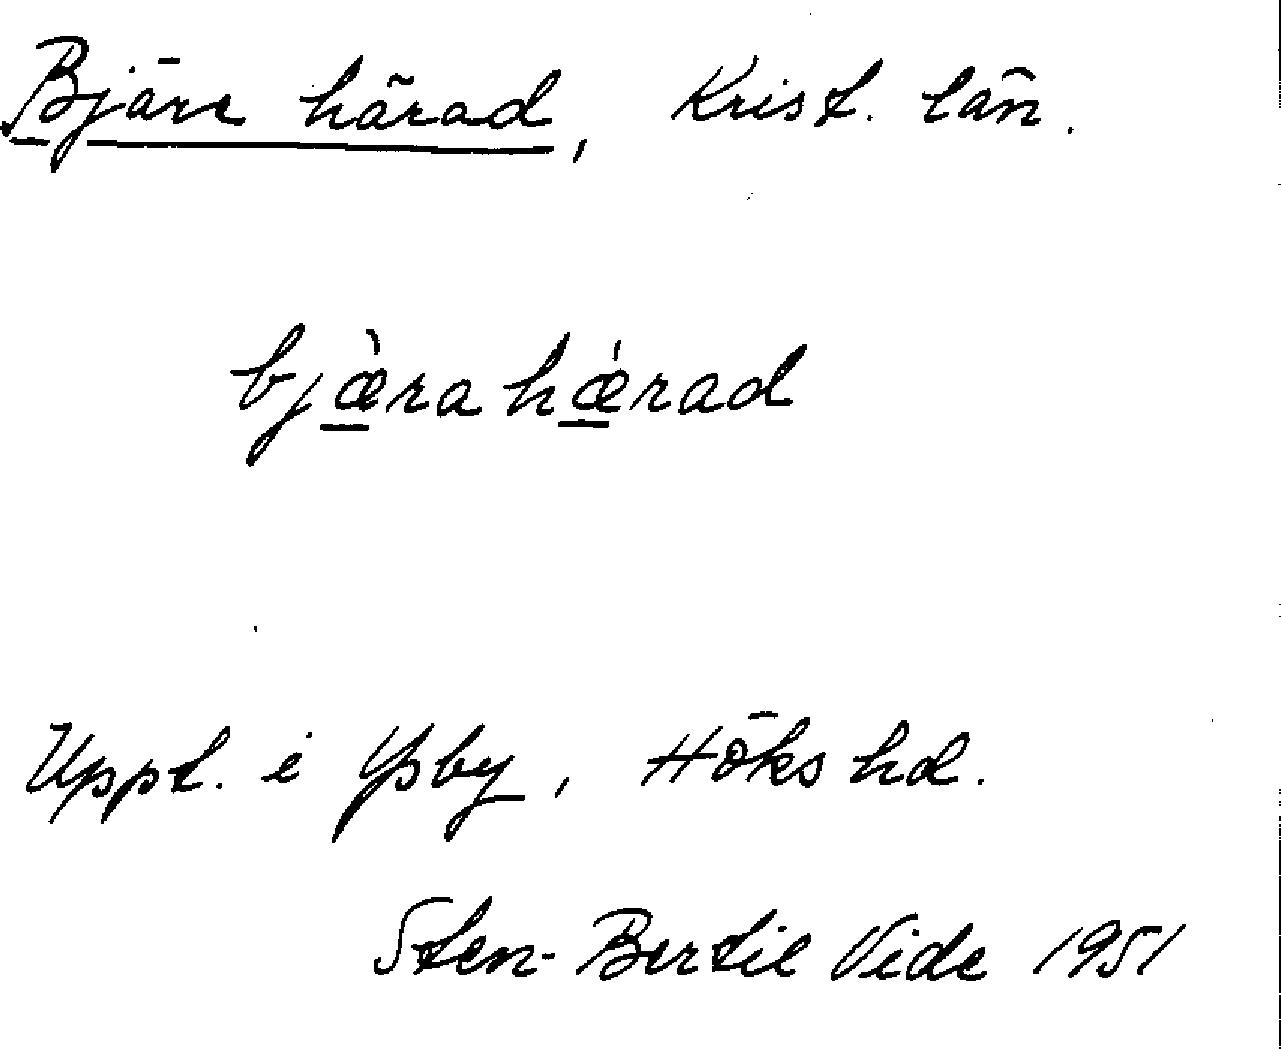 Bjäre härad, Krist. län.
bjæ̀ra hǽrad
Uppt. i Ysby, Höks hd.
Sten-Bertil Vide 1951